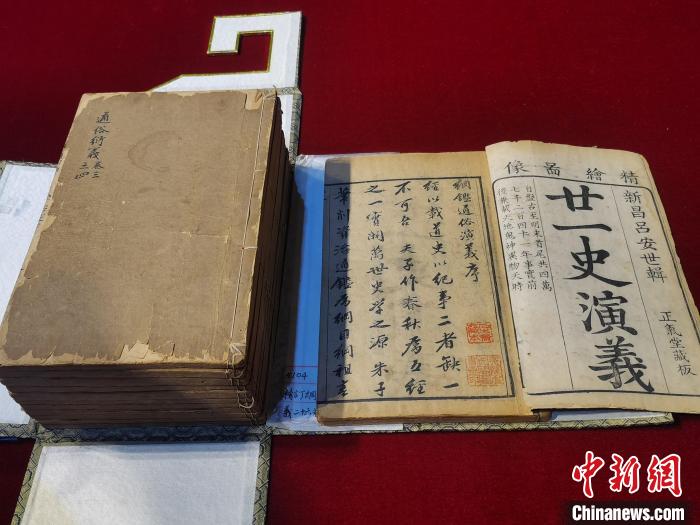 通俗衍義卷三
三四
綱鑑通俗演義序
經以載道史以紀事二者缺一
不可 夫子作春秋為五經
之一 萬世史學之源 朱子
筆削資治通鑑為綱目綱祖
精繪啚像
新昌呂安世輯
廿一史演義
正氣堂藏板
自盤古至明末首尾共四萬
七千二百四十一年事實前
後兼載天地鬼神異物天時
中新网
Chinanews.com